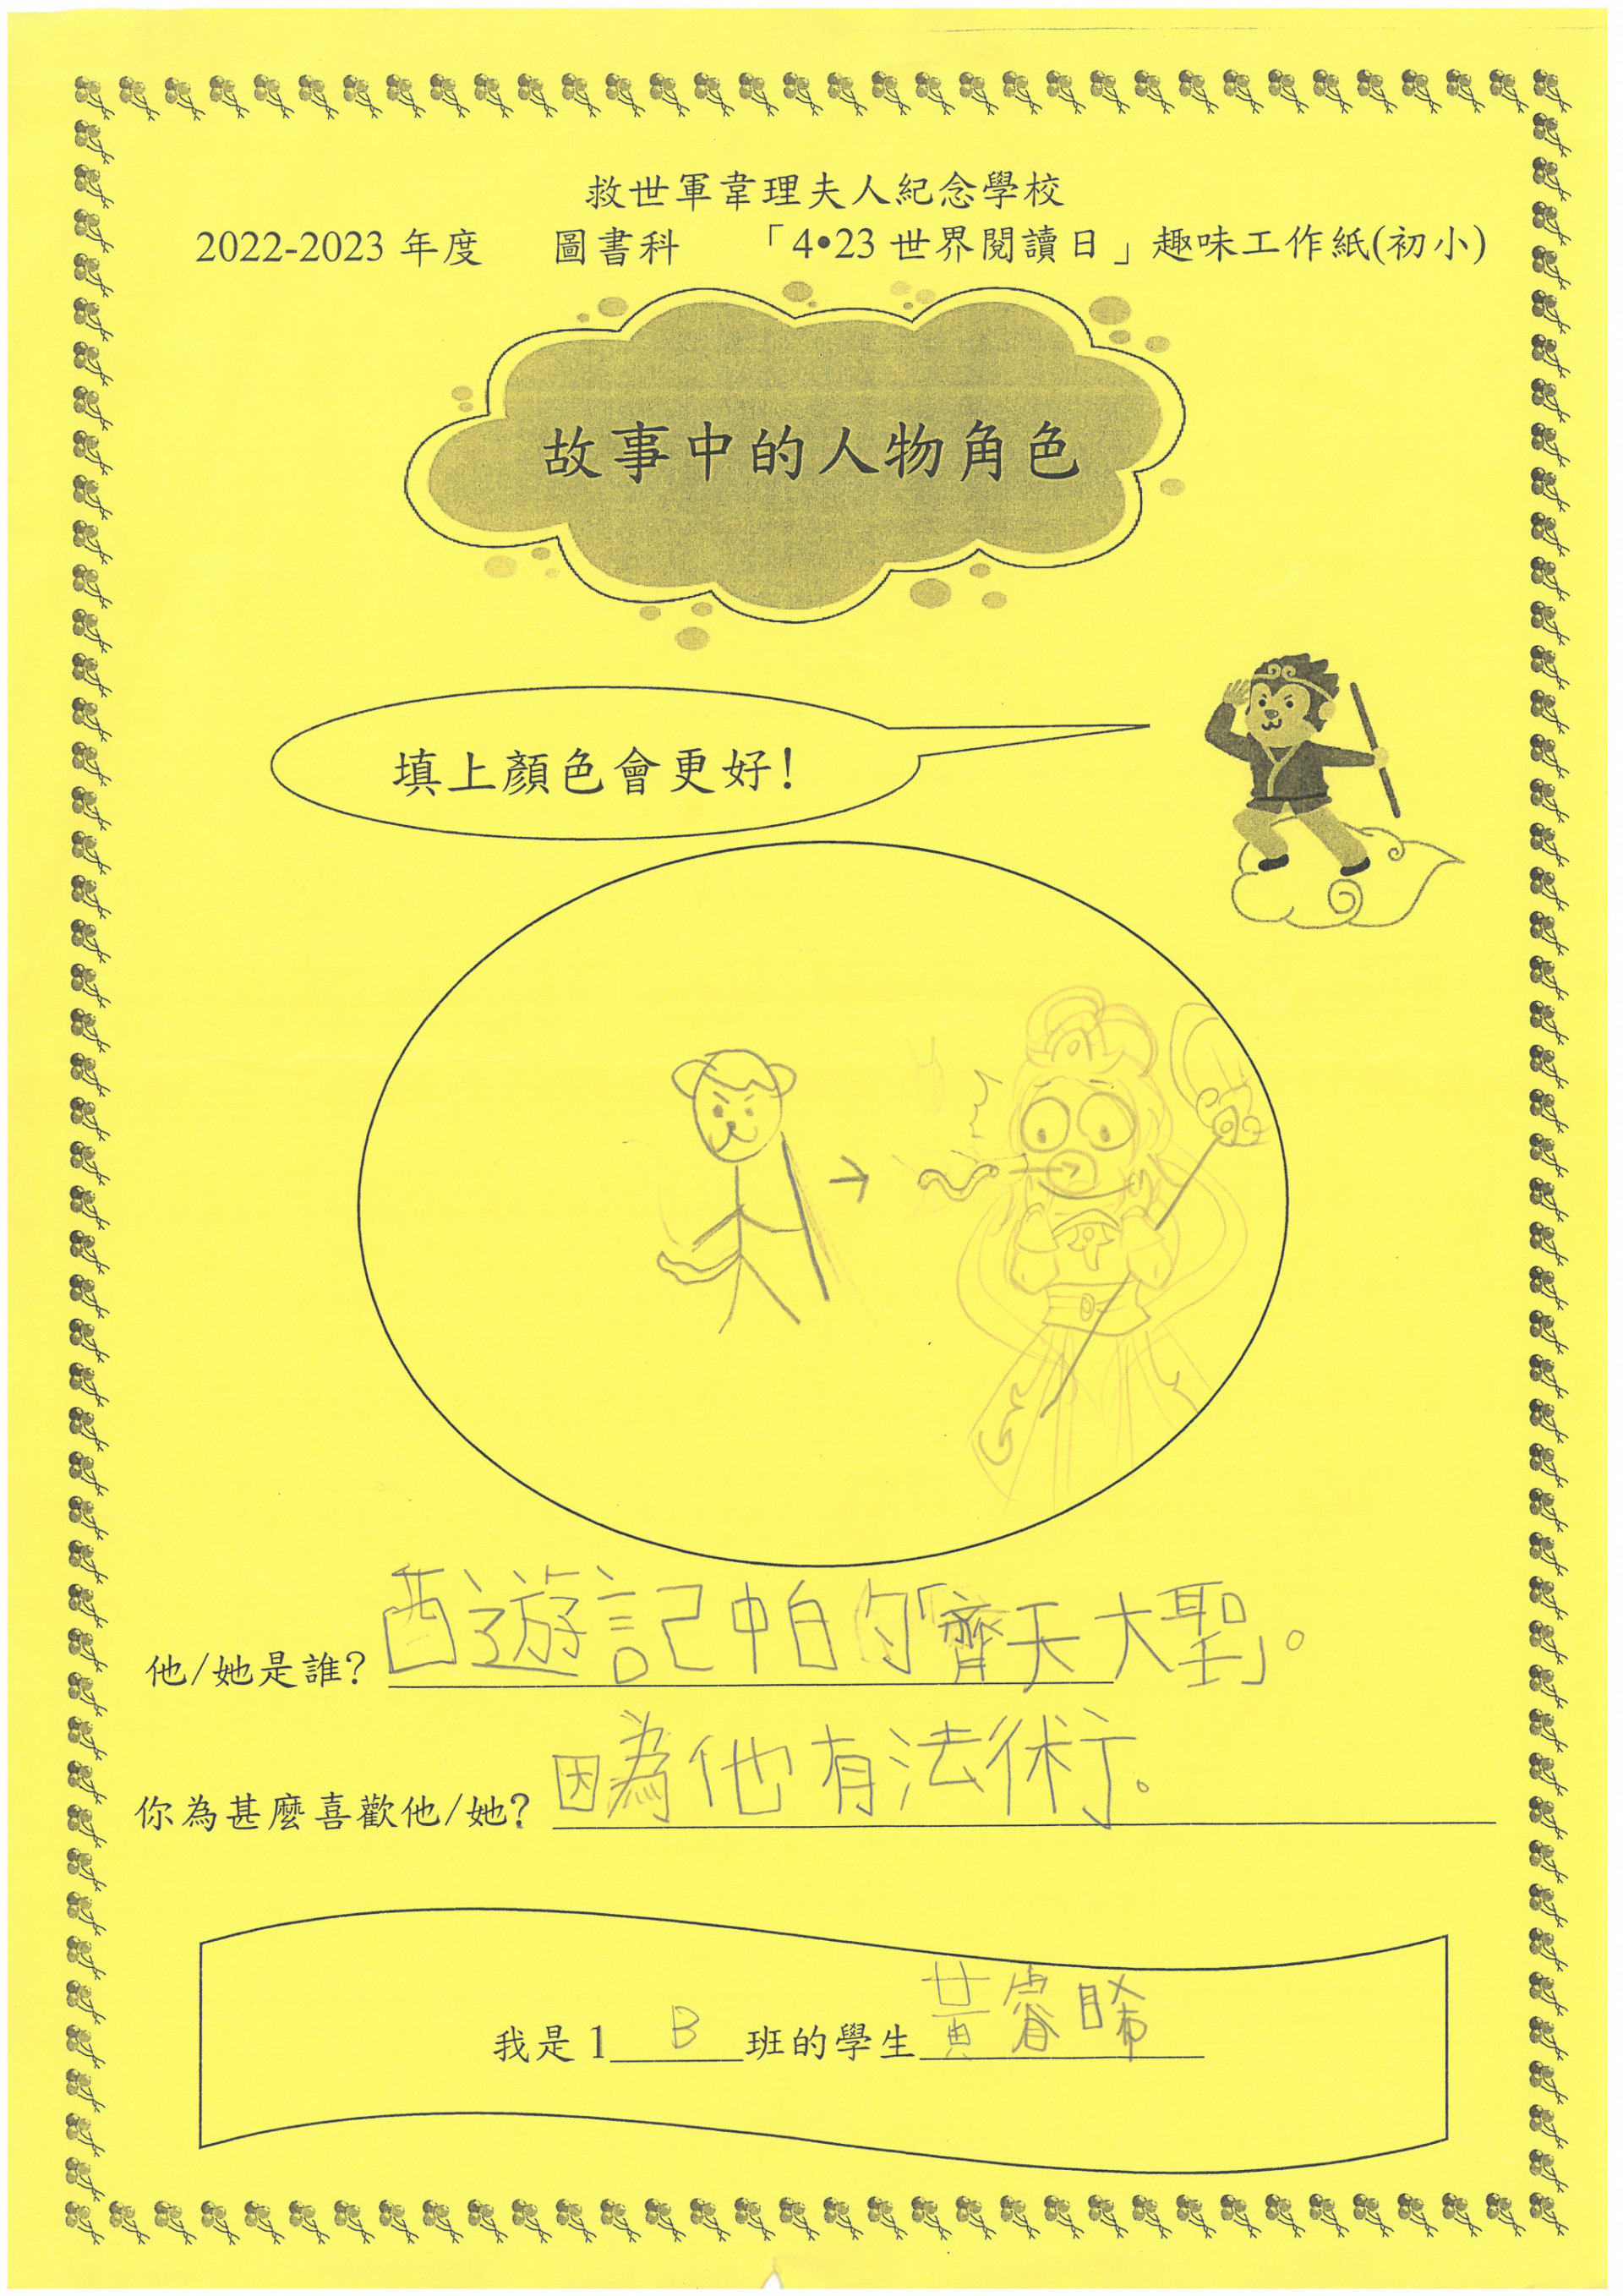 救世軍韋理夫人紀念學校
2022-2023 年度 圖書科 「4•23 世界閱讀日」趣味工作紙(初小)
故事中的人物角色
填上顏色會更好!
他/她是誰? 西遊記中白的「齊天大聖」。
你為甚麼喜歡他/她? 因為他有法術。
我是1 B 班的學生 黃睿晞